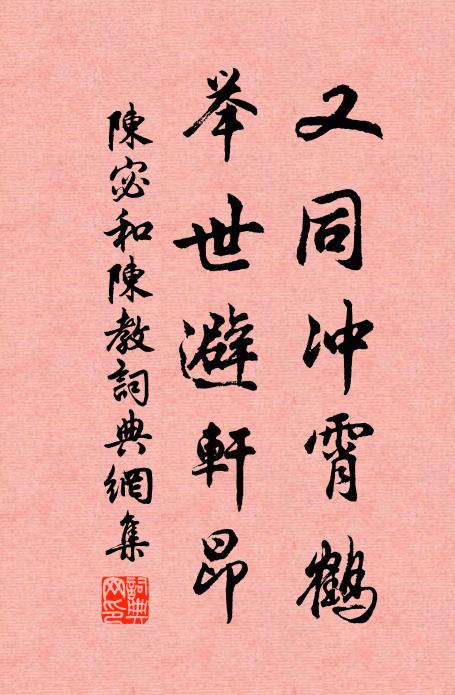 又同冲霄鹤
举世避軒昂
陳宓和陳教詞典網集
詞典网印